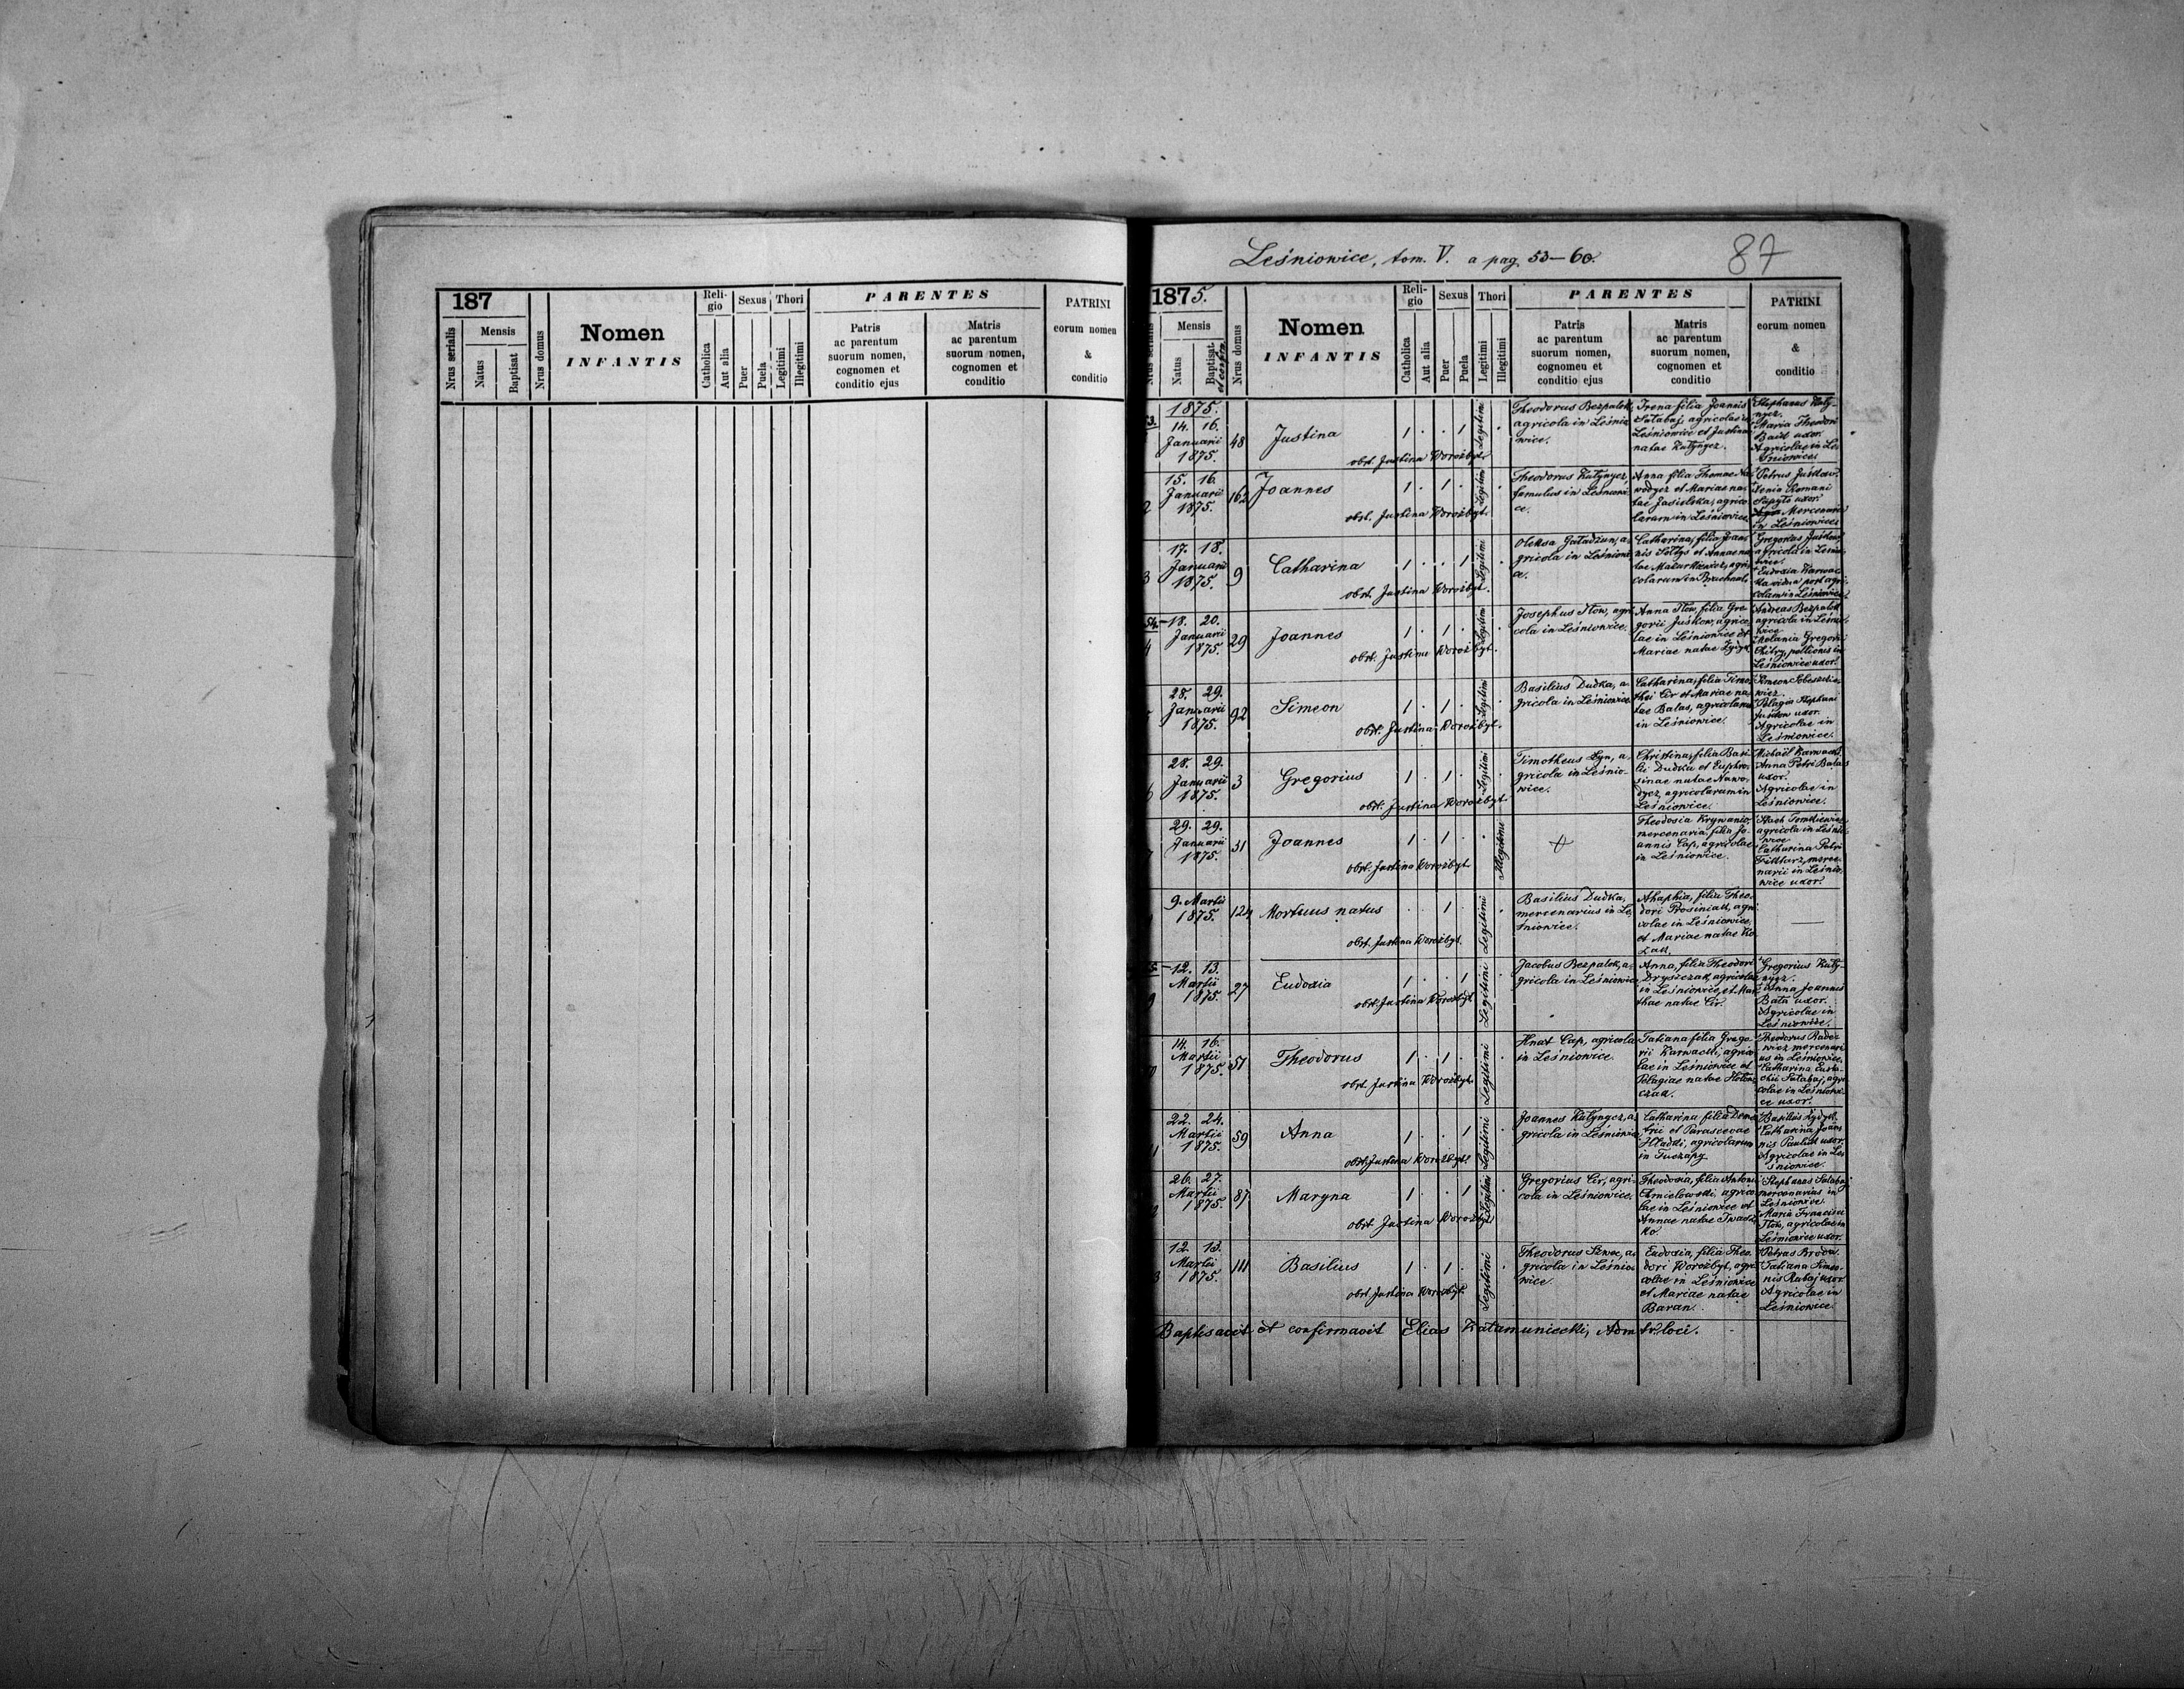 187
Nrus serialis
Mensis
Natus
Baptisat
Nrus domus
Nomen
INFANTIS
Reli-
gio
Catholica
Aut alia
Sexus
Puer
Puela
Thori
Legitimi
Illegitimi
PARENTES
Patris
ac parentum
suorum nomen,
cognomen et
conditio ejus
Matris
ac parentum
suorum nomen,
cognomen et
conditio
PATRINI
eorum nomen
&
conditio
Leśniowice, tom. V. a pag. 53–60.
87
1875.
Nrus serialis
Mensis
Natus
Baptisat.
et confirm.
Nrus domus
Nomen
INFANTIS
Reli-
gio
Catholica
Aut alia
Sexus
Puer
Puela
Thori
Legitimi
Illegitimi
PARENTES
Patris
ac parentum
suorum nomen,
cognomen et
conditio ejus
Matris
ac parentum
suorum nomen,
cognomen et
conditio
PATRINI
eorum nomen
&
conditio
1875.
14. 16.
Januarii
1875.
48
Justina
1 . . 1
Legitimi
obst. Justina Worożbyt.
Theodorus Bezpalok,
agricola in Leśnio-
wice.
Irena filia Joannis
Sałabaj, agricolae in
Leśniowice et Justinae
natae Kułynycz.
Stephanus Kuły-
nycz.
Maria Theodori
uxor.
Agricolae in Le-
śniowice.
2
15. 16.
Januarii
1875.
162
Joannes
1 . 1 .
Legitimi
obst. Justina Worożbyt.
Theodorus Kułynycz,
famulus in Leśniowi-
ce.
Anna filia Thomae Na-
wodycz et Mariae na-
tae Jasielska, agrico-
larum in Leśniowice.
Petrus Juśkow.
Xenia Romani
uxor.
Mercenarii
in Leśniowice.
3
17. 18.
Januarii
1875.
9
Catharina
1 . . 1
Legitimi
obst. Justina Worożbyt.
Oleksa Gaładzun, a-
gricola in Leśniowi-
ce.
Catharina, filia Joan-
nis Sołtys et Annae na-
tae Mazurkiewicz, agri-
colarum in
Gregorius Juśkow,
agricola in Leśnio-
wice.
Eudoxia Karwac-
ka vidua post agri-
colam in Leśniowice.
54.
4
18. 20.
Januarii
1875.
29
Joannes
1 . 1 .
Legitimi
obst. Justina Worożbyt.
Josephus Ilow, agri-
cola in Leśniowice.
Anna Ilow, filia Gre-
gorii Juśkow, agrico-
lae in Leśniowice et
Mariae natae
Andreas Bezpalok
agricola in Leśnio-
wice.
Melania Gregorii
pellionis in
Leśniowice uxor.
28. 29.
Januarii
1875.
92
Simeon
1 . 1 .
Legitimi
obst. Justina Worożbyt.
Basilius Dudka, a-
gricola in Leśniowice.
Catharina, filia Timo-
thei Cir et Mariae na-
tae Balas, agricolarum
in Leśniowice.
Simeon
Pelagia Stephani
Juśkow uxor.
Agricolae in
Leśniowice.
28. 29.
Januarii
1875.
3
Gregorius
1 . 1 .
Legitimi
obst. Justina Worożbyt.
Timotheus Syn, a-
gricola in Leśnio-
wice.
Christina, filia Basi-
lii Dudka et Euphro-
sinae natae Nawo-
dycz, agricolarum in
Leśniowice.
Michaël Karwacki.
Anna Petri Balas
uxor.
Agricolae in
Leśniowice.
29. 29.
Januarii
1875.
31
Joannes
1 . 1 .
Illegitimi
obst. Justina Worożbyt.
Theodosia
mercenaria, filia Jo-
annis Cap, agricolae
in Leśniowice.
Hnat Tomkiewicz
agricola in Leśnio-
wice
Catharina Petri
merce-
narii in Leśnio-
wice uxor.
9. Martii
1875.
124
Mortuus natus
. . 1 .
Legitimi
obst. Justina Worożbyt.
Basilius Dudka,
mercenarius in Le-
śniowice.
Ahaphia, filia Theo-
dori Prosiniak, agri-
colae in Leśniowice,
et Mariae natae Ko-
zak.
12. 13.
Martii
1875.
27
Eudoxia
1 . . 1
Legitimi
obst. Justina Worożbyt.
Jacobus Bezpalok, a-
gricola in Leśniowice.
Anna, filia Theodori
Dryszczak, agricolae
in Leśniowice, et Mar-
thae natae Cir.
Gregorius Kuły-
nycz.
Anna Joannis
Bała uxor.
Agricolae in
Leśniowice.
14. 16.
Martii
1875.
51
Theodorus
1 . 1 .
Legitimi
obst. Justina Worożbyt.
Hnat Cap, agricola
in Leśniowice.
Tatiana filia Grego-
rii Karwacki, agrico-
lae in Leśniowice et
Pelagiae natae
Theodorus Radke-
wicz mercenari-
us in Leśniowice.
Catharina Eusta-
chii Sałabaj, agri-
colae in Leśniowi-
ce uxor.
22. 24.
Martii
1875.
59
Anna
1 . . 1
Legitimi
obst. Justina Worożbyt.
Joannes Kułynycz, a-
gricola in Leśniowice.
Catharina filia Deme-
trii et Parascevae
Hładki, agricolarum
in Tuczapy.
Basilius
Catharina Joan-
nis Pauluk uxor.
Agricolae in Le-
śniowice.
26. 27.
Martii
1875.
87
Maryna
1 . . 1
Legitimi
obst. Justina Worożbyt.
Gregorius Cir, agri-
cola in Leśniowice.
Theodosia, filia Antoni
Chmielowski, agrico-
lae in Leśniowice et
Annae natae Iwasz-
ko.
Stephanus Sałabaj
mercenarius in
Leśniowice.
Maria Francisci
Ilow, agricolae in
Leśniowice uxor.
12. 13.
Martii
1875.
111
Basilius
1 . 1 .
Legitimi
obst. Justina Worożbyt.
Theodorus Szwec, a-
gricola in Leśnio-
wice.
Eudoxia, filia Theo-
dori Worożbyt, agri-
colae in Leśniowice
et Mariae natae
Baran.
Petrus Brodu.
Tatiana Simeo-
nis Rubaj uxor.
Agricolae in
Leśniowice.
Baptisavit et confirmavit Elias Kałamuniecki, Admtr. loci.